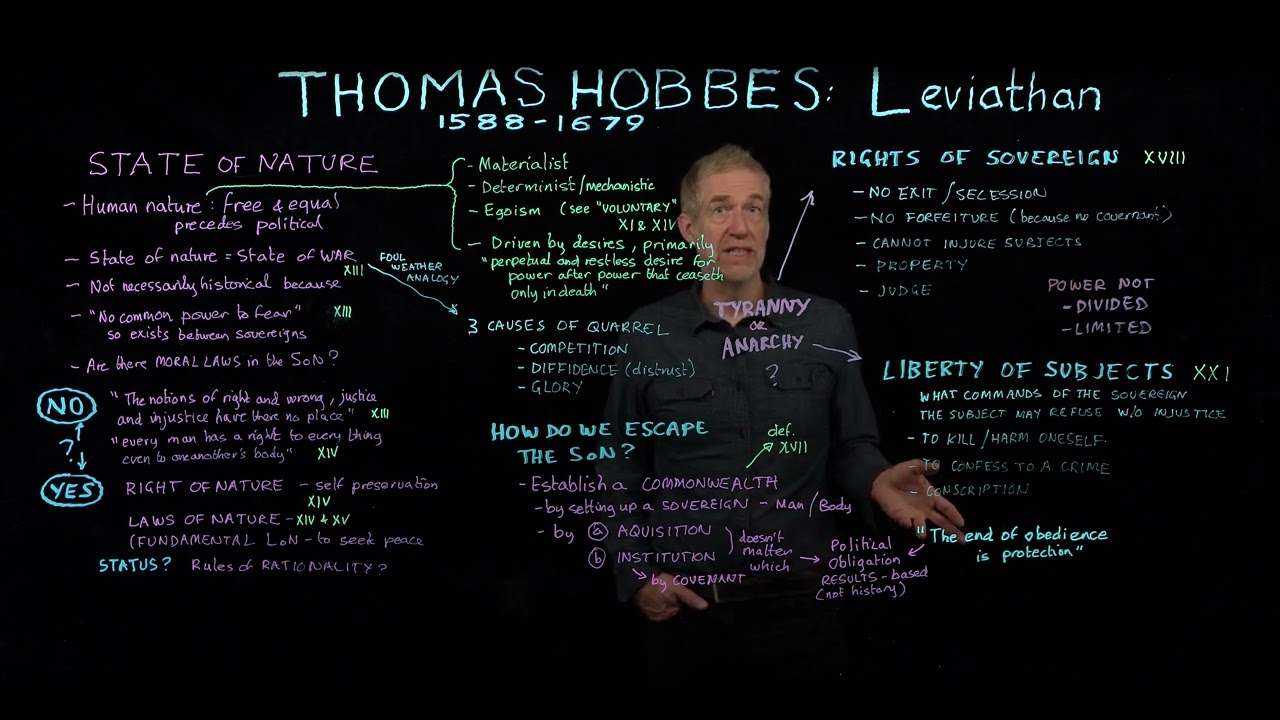 THOMAS HOBBES: Leviathan
1588-1679
STATE OF NATURE
- Human nature: free & equal
precedes political
- State of nature = State of WAR
XIII
- Not necessarily historical because
- "No common power to fear" XIII
so exists between sovereigns
- Are there MORAL LAWS in the SoN?
NO
?
YES
"The notions of right and wrong, justice
and injustice have there no place" XIII
"every man has a right to every thing
even to one another's body" XIV
RIGHT OF NATURE - self preservation
XIV
LAWS OF NATURE - XIV + XV
(FUNDAMENTAL LoN - to seek peace
STATUS? Rules of RATIONALITY?
- Materialist
- Determinist/mechanistic
- Egoism (see "VOLUNTARY"
XI & XIV)
- Driven by desires, primarily
"perpetual and restless desire for
power after power that ceaseth
only in death"
FOUL
WEATHER
ANALOGY
3 CAUSES OF QUARREL
- COMPETITION
- DIFFIDENCE (distrust)
- GLORY
HOW DO WE ESCAPE
THE SoN?
def.
XVII
- Establish a COMMONWEALTH
- by setting up a SOVEREIGN - Man/Body
- by a AQUISITION
b INSTITUTION
by COVENANT
doesn't
matter
which
Political
Obligation
RESULTS-based
(not history)
TYRANNY
or
ANARCHY
?
RIGHTS OF SOVEREIGN XVIII
- NO EXIT/SECESSION
- NO FORFEITURE (because no covenant)
- CANNOT INJURE SUBJECTS
- PROPERTY
- JUDGE
POWER NOT
- DIVIDED
- LIMITED
LIBERTY OF SUBJECTS XXI
WHAT COMMANDS OF THE SOVEREIGN
THE SUBJECT MAY REFUSE W/O INJUSTICE
- TO KILL/HARM ONESELF.
- TO CONFESS TO A CRIME
- CONSCRIPTION
"The end of obedience
is protection"